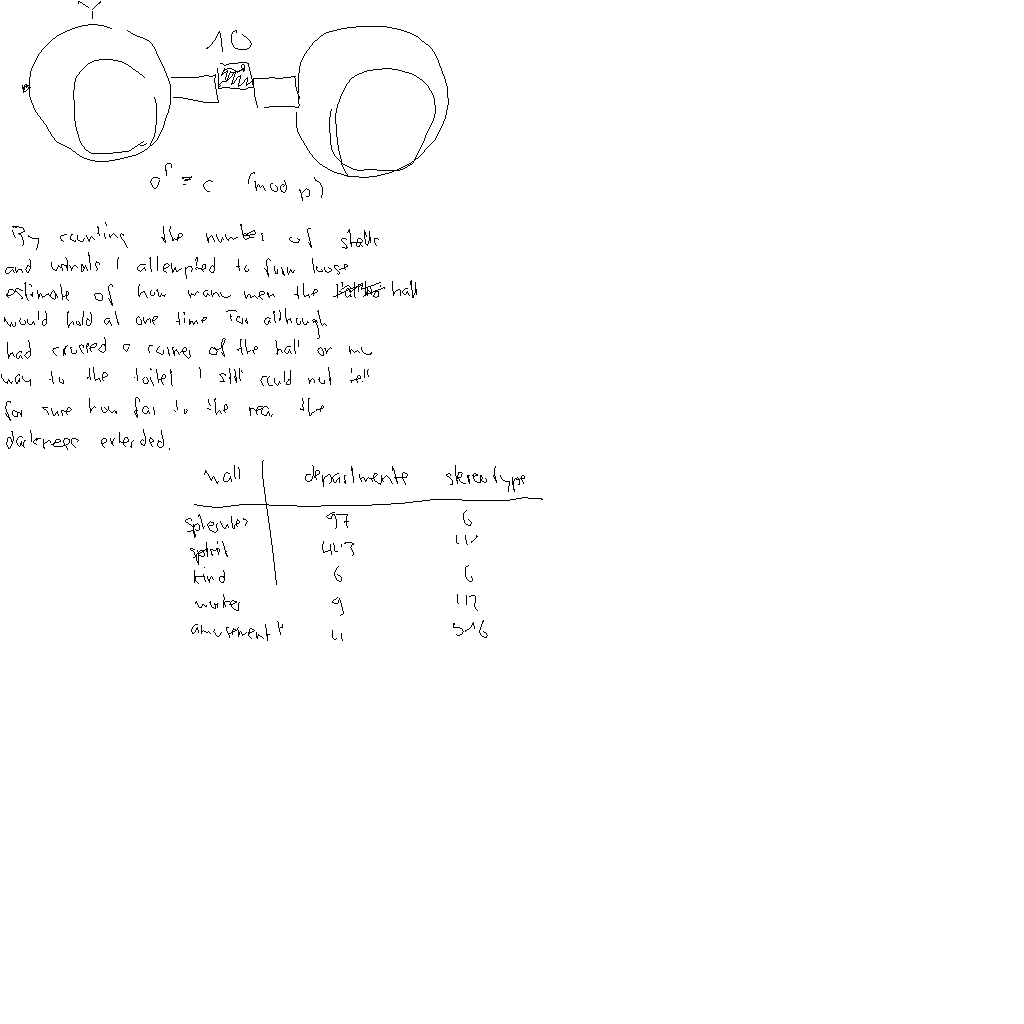 Y
10
a^p ≡ c (mod p)
By counting the number of stalls
and urinals I attempted to form loose
estimate of how many men the hall
would hold at one time For although
had crossed a corner of the hall on my
way to the toilet I still could not tell
for sure how far to the rear the
darkness extended.
hall departments stereotype
spherules 97 6
spirit 443 112
kind 6 6
worker 9 112
amusement 4 516